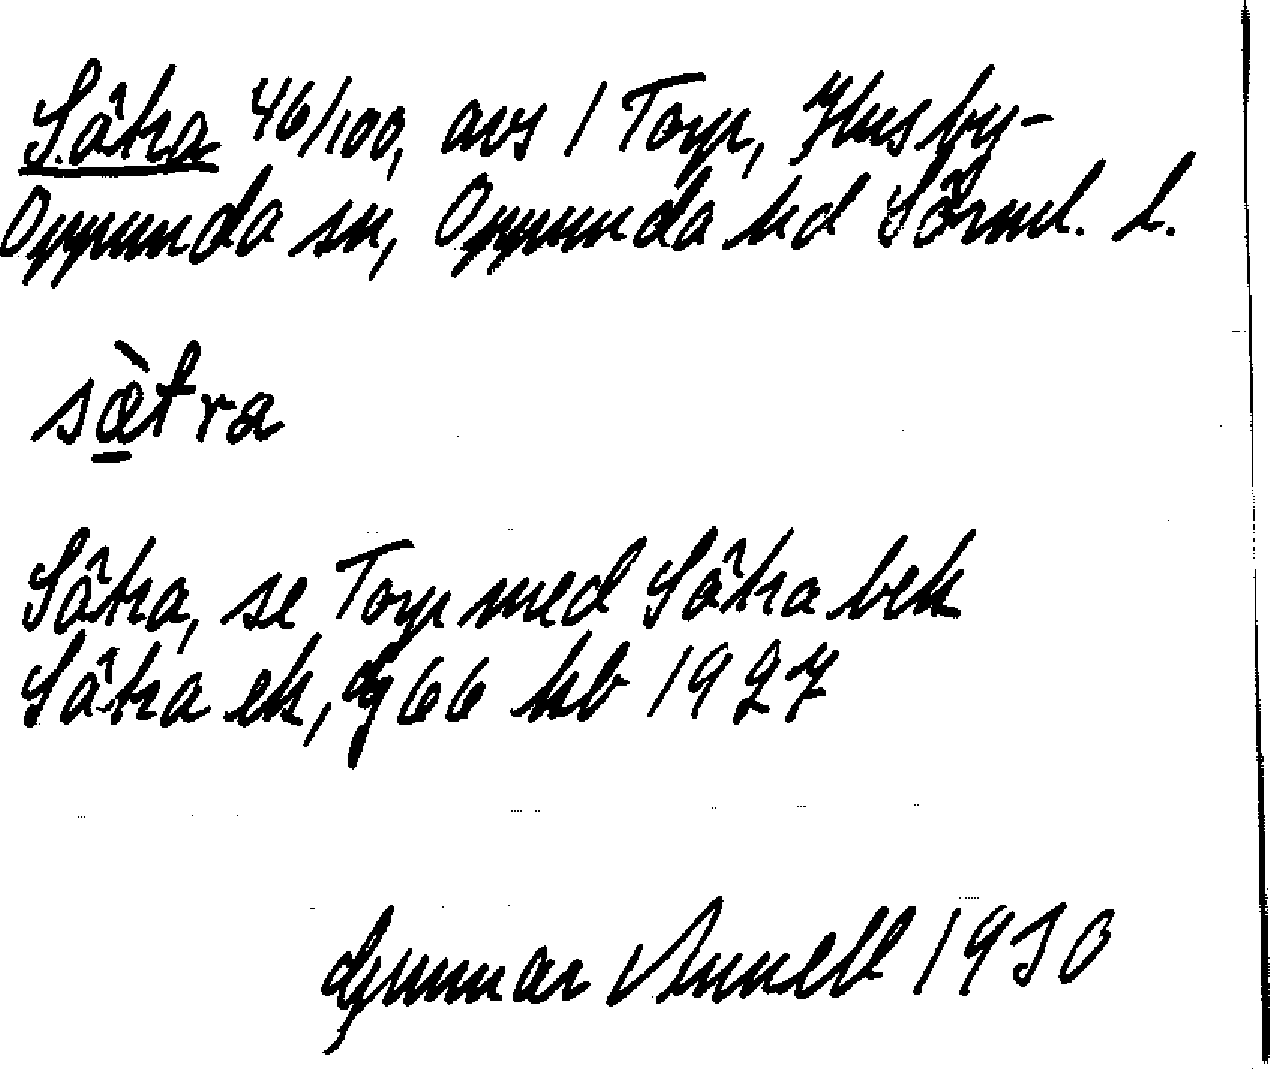 Sätra 46/100, avs 1 Torp, Husby-
Oppunda sn, Oppunda hd Sörml. L.
sæ̀tra
Sätra, se Torp med Sätra bek
Sätra ek, g 66 kb 1927
Gunnar Annell 1930